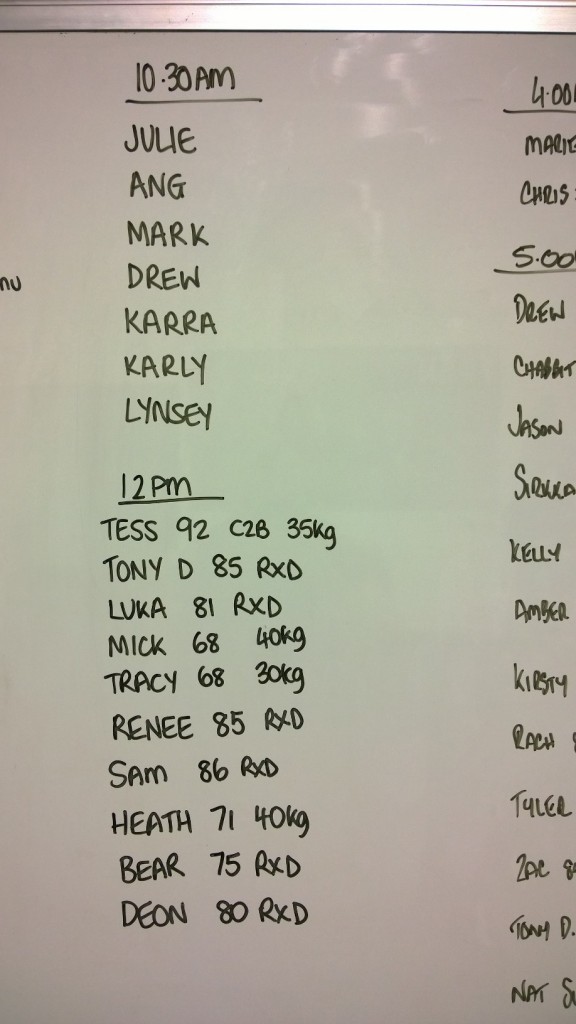 10.30AM
JULIE
ANG
MARK
DREW
KARRA
KARLY
LYNSEY
12PM
TESS 92 C2B 35kg
TONY D 85 RXD
LUKA 81 RXD
MICK 68 40kg
TRACY 68 30kg
RENEE 85 RXD
SAM 86 RXD
HEATH 71 40kg
BEAR 75 RXD
DEON 80 RXD
nu
4.00
MARIE
CHRIS
5.00
DREW
JASON
KELLY
AMBER
KIRSTY
RACH
TYLER
ZAC
TONY D.
NAT